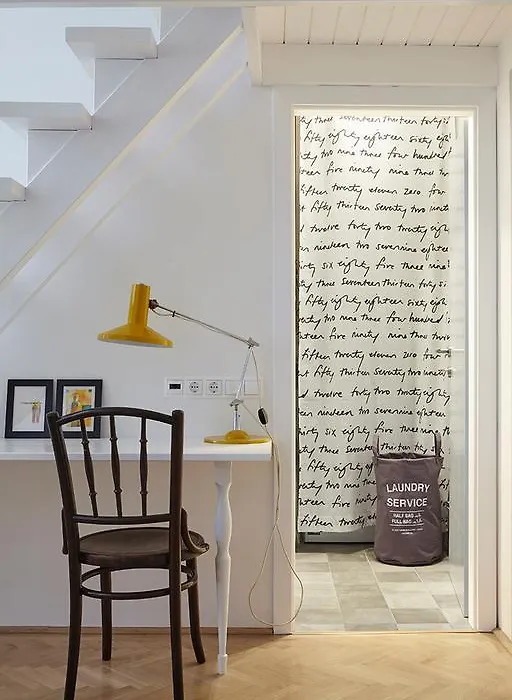 ty three seventeen thirteen forty si
fifty eighty eighteen sixty eigh
enty two nine three four hundred
teen five ninety nine three tw
fifteen twenty eleven zero four
t fifty thirteen seventy two ninete
d twelve forty two twenty eigh
en nineteen two seven nine eightee
irty six eighty five three nine
ty three seventeen thirteen forty si
fifty eighty eighteen sixty eigh
enty two nine three four hundred
teen five ninety nine three tw
fifteen twenty eleven zero four
t fifty thirteen seventy two ninete
d twelve forty two twenty eigh
en nineteen two seven nine eighteen
hirty six eighty five three nine
ty three seventeen thirteen
fifty eighty
enty two nine three
teen five ninety
fifteen twenty
LAUNDRY
SERVICE
HALF BAG
FULL BAG